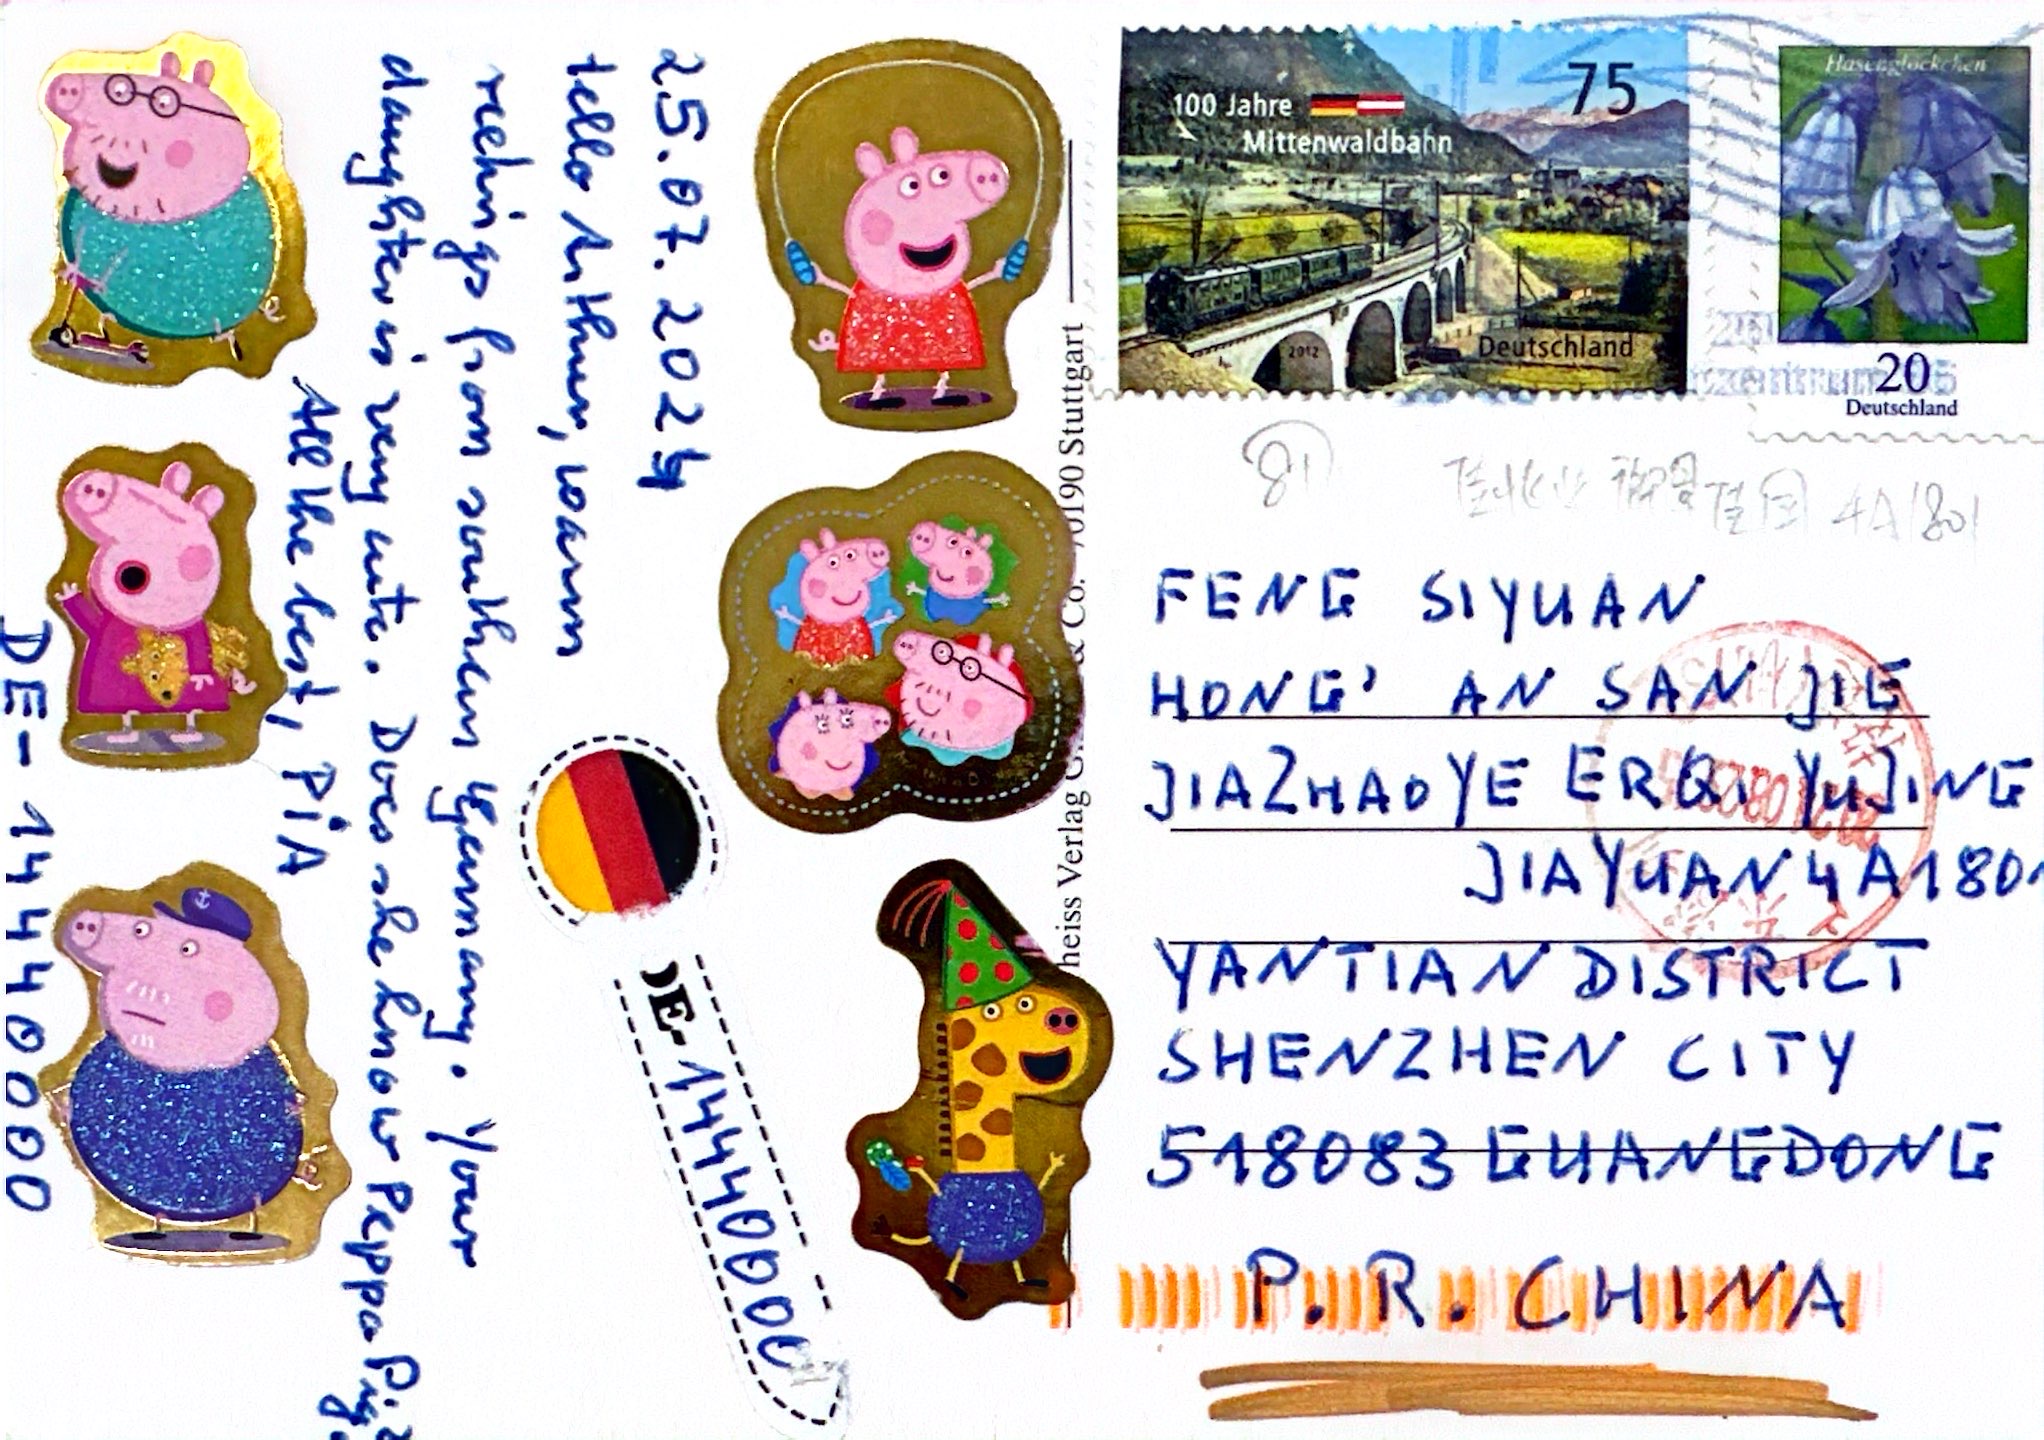 25.07.2024
Hello Arthur, warm
greetings from southern Germany. Your
daughter is very cute. Does she know Peppa Pig?
All the best, PiA
DE-14440000
DE-14440000
heiss Verlag G & Co. 70190 Stuttgart
100 Jahre
Mittenwaldbahn
75
2012
Deutschland
Hasenglöckchen
20
Deutschland
81
4A1801
FENG SIYUAN
HONG' AN SAN JIE
JIAZHAOYE ERQI YUJING
JIAYUAN 4A1801
YANTIAN DISTRICT
SHENZHEN CITY
518083 GUANGDONG
P.R. CHINA